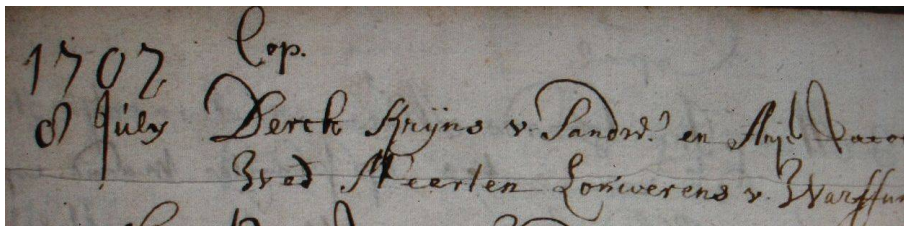 1707 Cop.
8 July Derck Krijns v. Sandw. en Anje
Wed Meerten Louwerens v. Warffum